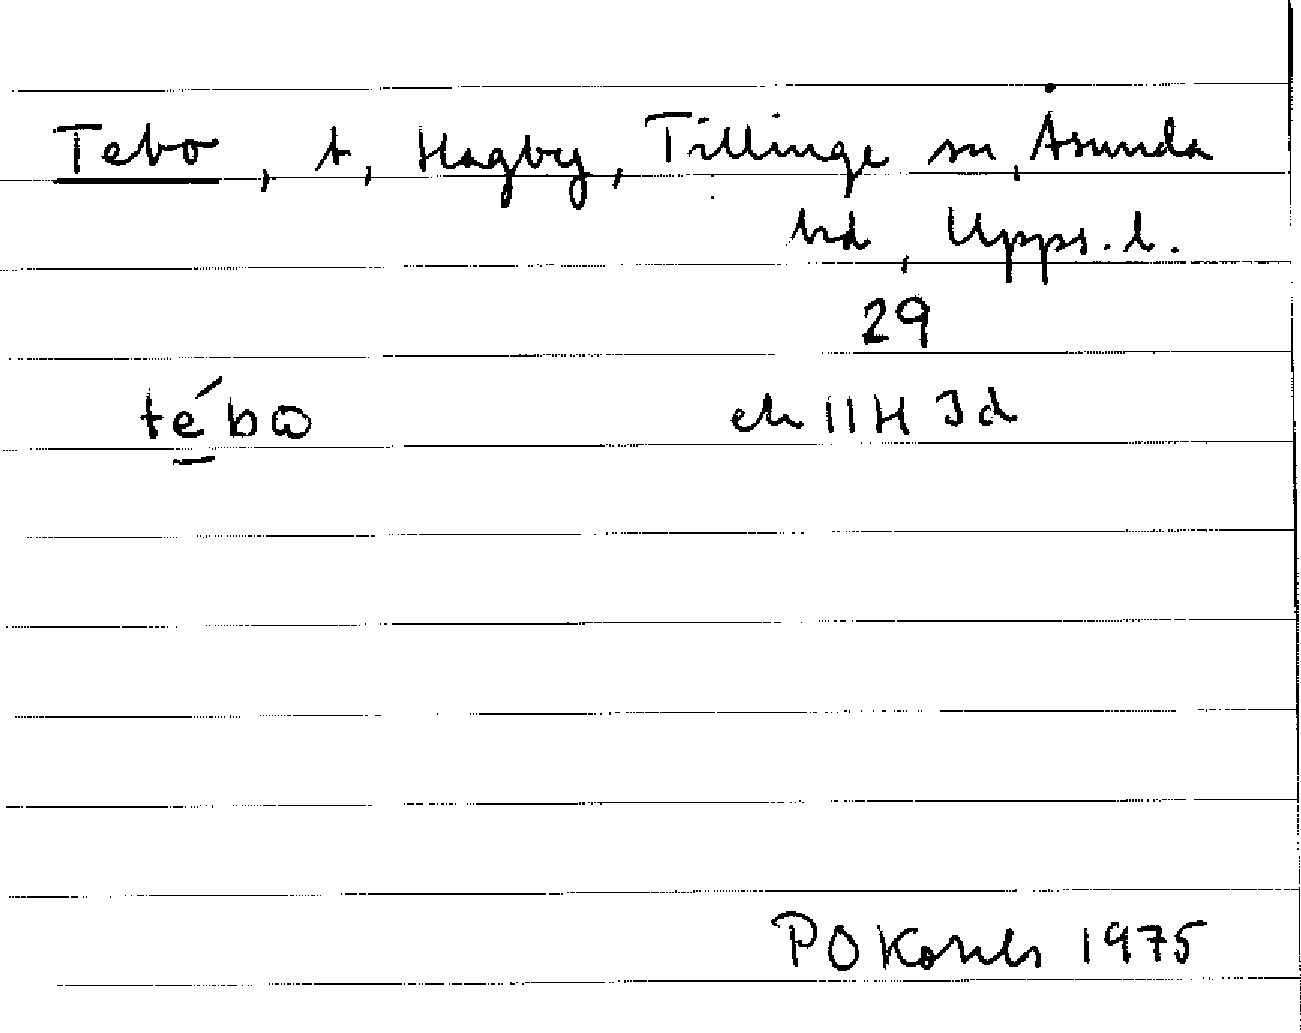 Tebo, t, Hagby, Tillinge sn, Åsunda
hd, Upps. l.
29
té̱bω ek 11H 3d
PO 1975